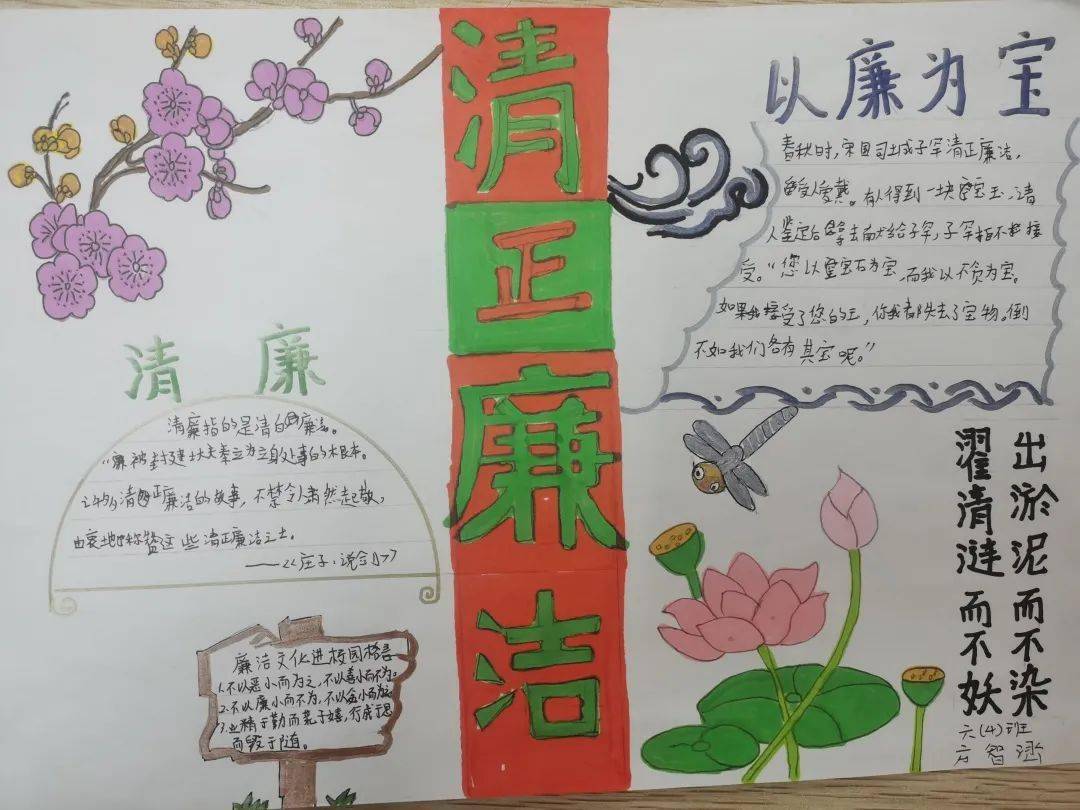 清正廉洁
清 廉
清廉指的是清白廉洁。
"廉被封建士大夫奉立为立身处事的根本。
让我们清白正廉洁的故事，不禁令肃然起敬，
由衷地称赞这些清正廉洁之士。
——《庄子·说剑》
廉洁文化进校园格言
1.不以恶小而为之，不以善小而不为。
2.不以廉小而不为，不以贪小而为之
3.业精于勤而荒于嬉，行成于思
而毁于随。
以廉为宝
春秋时，宋国司城子罕清正廉洁，
受人爱戴。有人得到一块宝玉，请
人鉴定后拿去献给子罕，子罕拒不接
受。"您以宝石为宝，而我以不贪为宝。
如果我接受了您的玉，你我都失去了宝物。倒
不如我们各有其宝呢。"
出淤泥而不染
濯清涟而不妖
六(4)班
方智涵